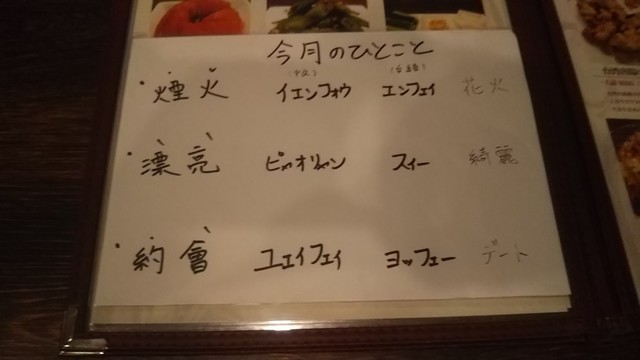 今月のひとこと
(中文) (台語)
煙火 イエンフォウ エンフェイ 花火
漂亮 ピャオリャン スイー 綺麗
約會 ユェイフェイ ヨッフェー デート